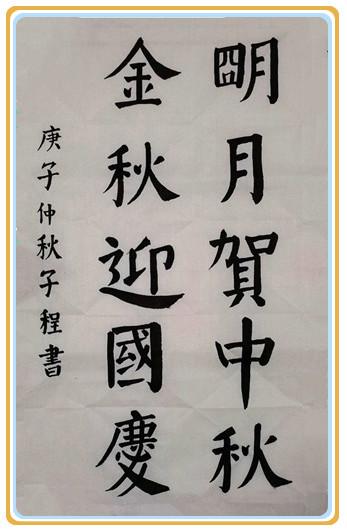 明月賀中秋
金秋迎國慶
庚子仲秋子程書